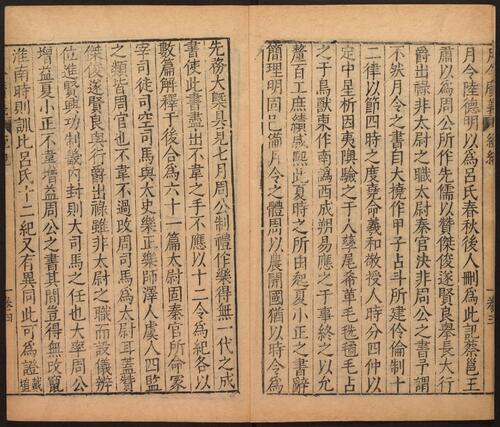 月令陸德明以為呂氏春秋後人刪為此記蔡邕王
肅以為周公所作先儒以贊傑俊遂賢良舉長大行
爵出祿非太尉之職太尉秦官決非周公之書予謂
不然月令之書自大撓作甲子占斗所建伶倫制十
二律以節四時之度堯命羲和敬授人時分四仲以
定中星析因夷隩驗之于人孳尾希革毛毨氄毛占
之于鳥獸東作南訛西成朔易應之于事終以允
釐百工庶績咸熙此夏時之所由起夏小正之書辭
簡理明固已備月令之體周以農開國猶以時令為
先務大槩具見七月周公制禮作樂得無一代之成
書使此書盡出不韋之手不應以十二令為紀各以
數篇解釋于後合為六十一篇太尉固秦官所命冢
宰司徒司空司馬與太史樂正樂師澤人虞人四監
之類皆周官也不韋不過改周司馬為太尉耳蓋贊
傑俊遂賢良與行爵出祿雖非太尉之職而設儀辨
位進賢興功制畿內封則大司馬之任也大率周公
增益夏小正不韋增益周公之書其間豈得無改竄
淮南時則訓此呂氏十二紀又有異同此可為證戴埴
卷四